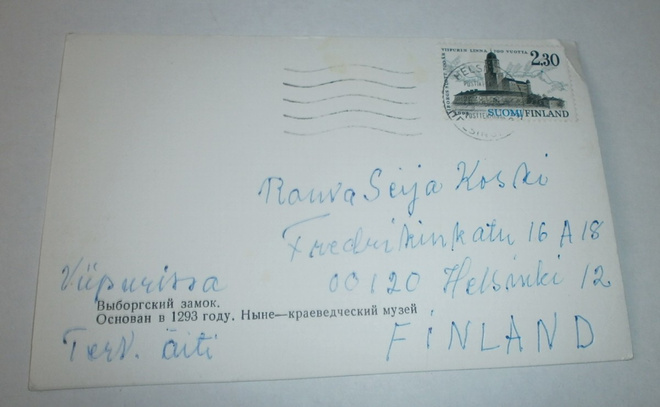 VIIPURIN LINNA 700 VUOTTA
2.30
SUOMI FINLAND
Rouva Seija Koski
Fredrikinkatu 16 A 18
00120 Helsinki 12
FINLAND
Viipurissa
Выборгский замок.
Основан в 1293 году. Ныне—краеведческий музей
Terv. äiti